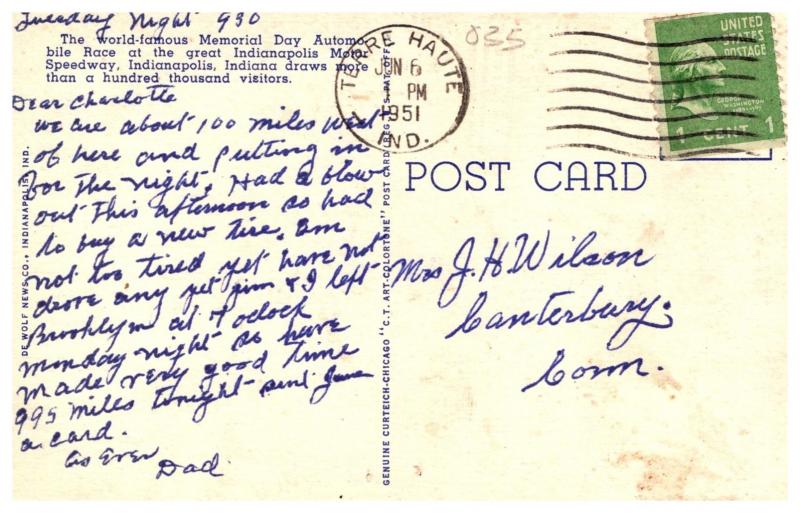 Tuesday Night 930
The world-famous Memorial Day Automo-
bile Race at the great Indianapolis Motor
Speedway, Indianapolis, Indiana draws more
than a hundred thousand visitors.
Dear Charlotte
we are about 100 miles west
of here and putting in
for the night. Had a blow
out this afternoon so had
to buy a new tire. am
not too tired yet have not
drove any yet Jim & I left
Brooklyn at 7 oclock
monday night so have
made very good time
995 miles tonight sent June
a card.
as ever
Dad
DE WOLF NEWS CO., INDIANAPOLIS, IND.
GENUINE CURTEICH-CHICAGO "C.T. ART-COLORTONE" POST CARD (REG. U.S. PAT. OFF.)
TERRE HAUTE
JUN 6
1 PM
1951
IND.
035
UNITED
STATES
POSTAGE
GEORGE
WASHINGTON
1 CENT 1
POST CARD
Mrs J. H Wilson
Canterbury.
Conn.